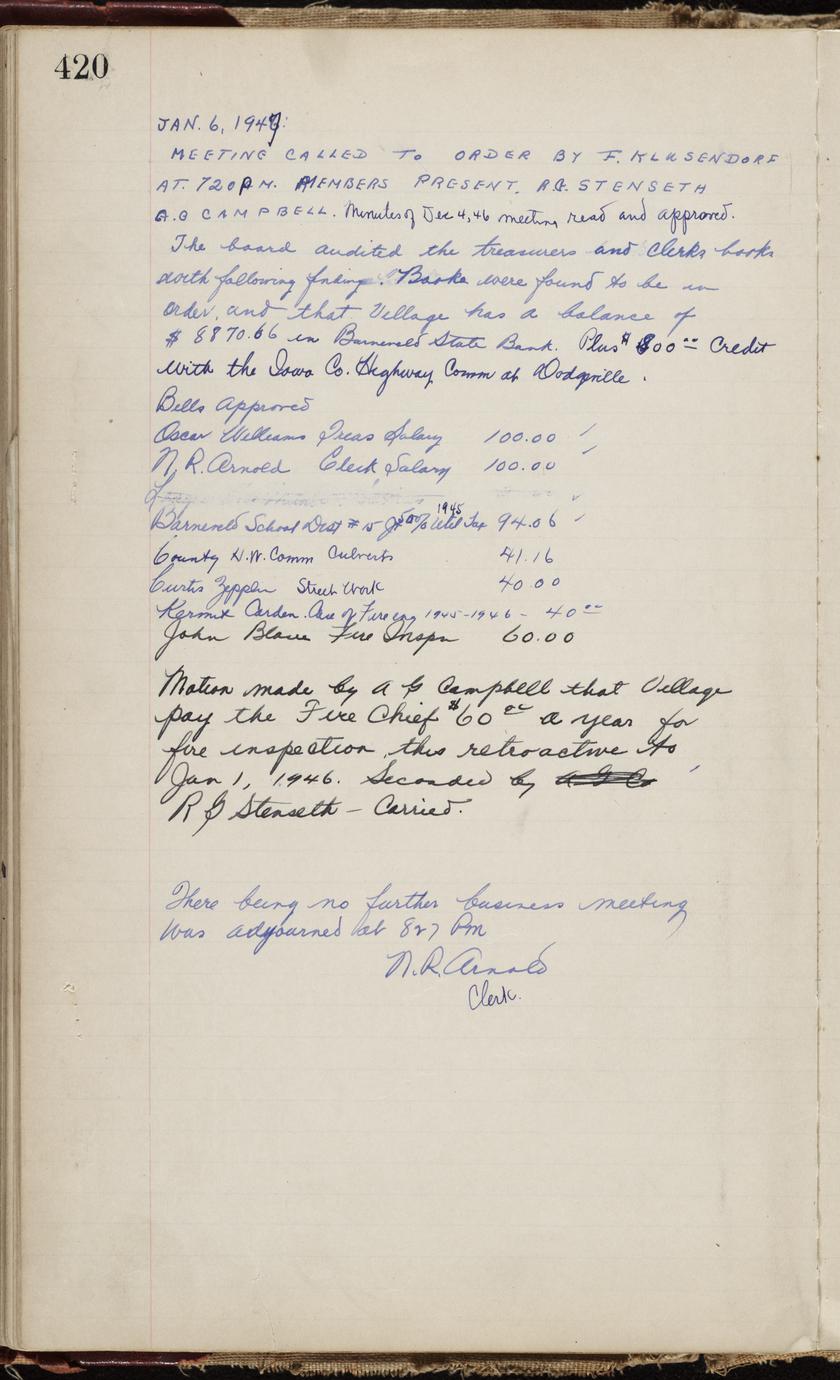 420
JAN. 6, 1947:
MEETING CALLED TO ORDER BY F. KLUSENDORF
AT 720 P.M. MEMBERS PRESENT, R.G. STENSETH
A.G CAMPBELL. Minutes of Dec 4, 46 meeting read and approved.
The board audited the treasurers and Clerks books
with following finding. Books were found to be in
order, and that Village has a balance of
$ 8870.66 in Barneveld State Bank. Plus $ 800 00 Credit
with the Iowa Co. Highway Comm at Dodgeville.
Bills Approved
Oscar Williams Treas Salary 100.00
N.R. Arnold Clerk Salary 100.00
Barneveld School Dist # 15 Jt 50% 1945 Util Tax 94.06
County H.W. Comm Culverts 41.16
Curtis Zepplin Street Work 40.00
Kermit Arden. Care of Fire eng 1945-1946 - 40 00
John Blaue Fire Inspn 60.00
Motion made by A G Campbell that Village
pay the Fire Chief $60 00 a year for
fire inspection, this retroactive to
Jan 1, 1946. Seconded by
R G Stenseth - Carried.
There being no further business meeting
was adjourned at 827 PM
N.R. Arnold
Clerk.